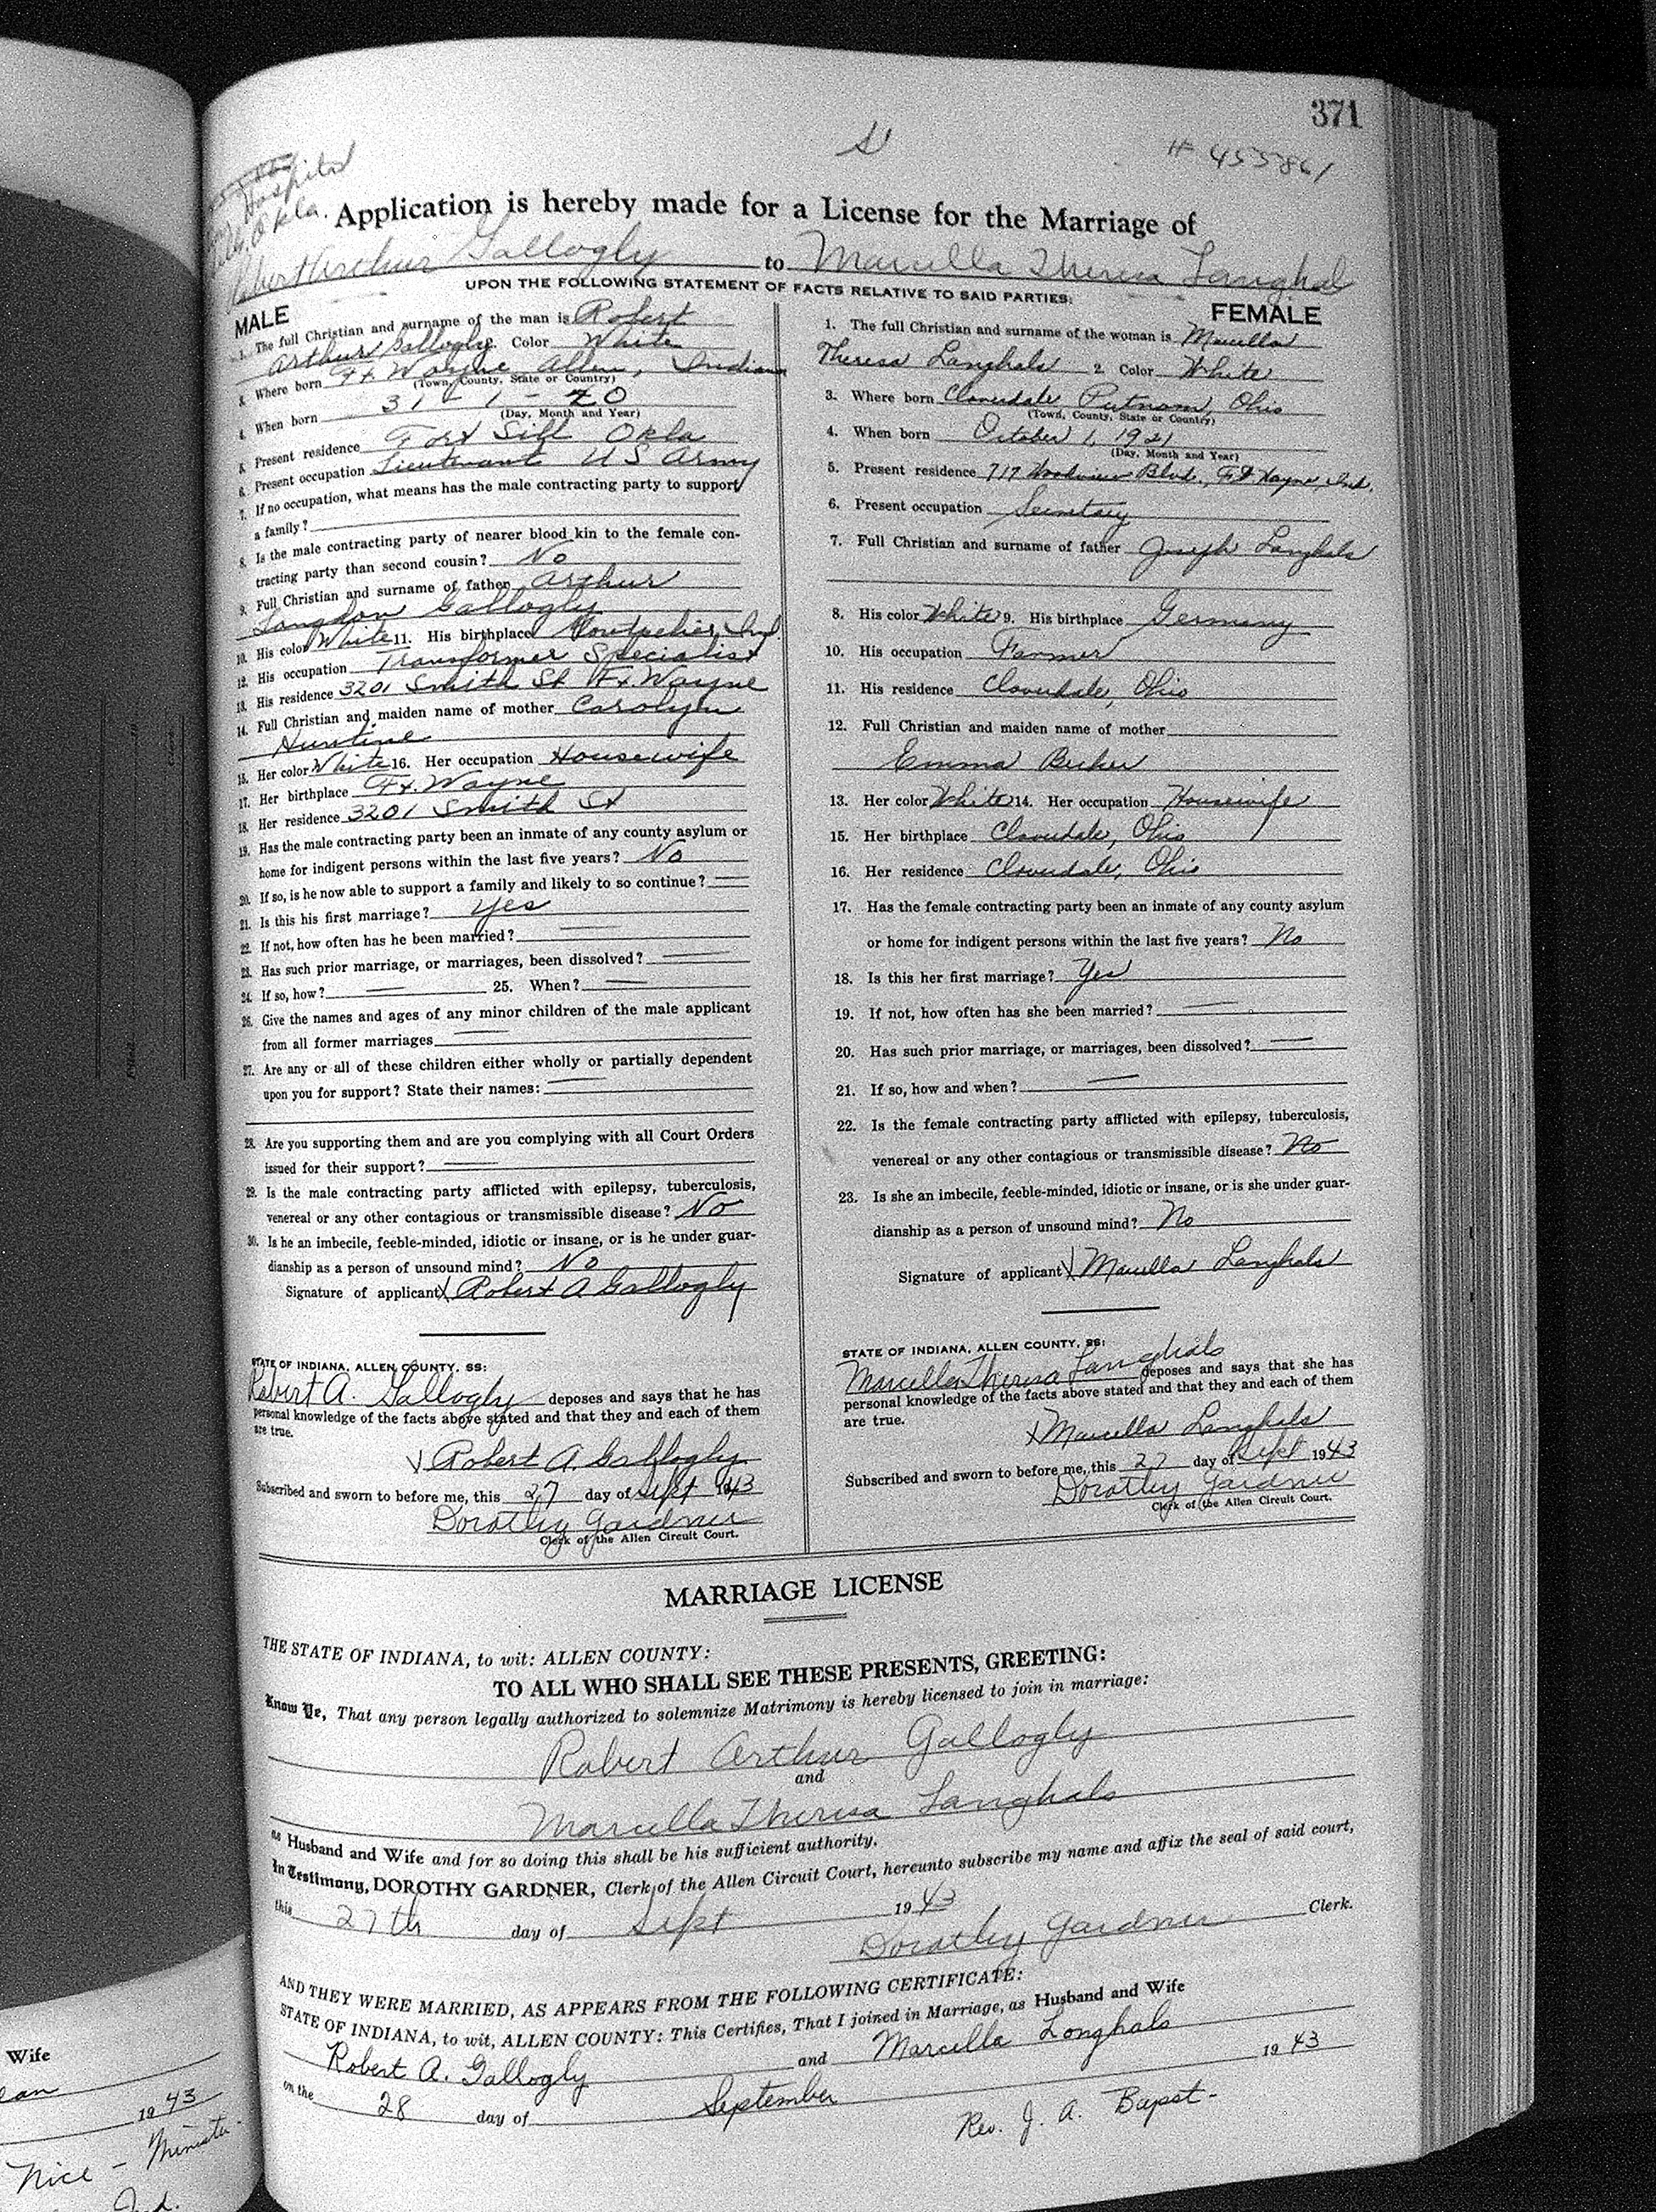 371
# 4533861
Hospital
Okla.
Application is hereby made for a License for the Marriage of
Robert Arthur Gallogly to Marcella Theresa Langhals
UPON THE FOLLOWING STATEMENT OF FACTS RELATIVE TO SAID PARTIES:
MALE
1. The full Christian and surname of the man is Robert
Arthur Gallogly 2. Color White
3. Where born Ft Wayne Allen, Indiana
(Town, County, State or Country)
4. When born 31 - 1 - 20
(Day, Month and Year)
5. Present residence Fort Sill Okla
6. Present occupation Lieutenant US Army
7. If no occupation, what means has the male contracting party to support
a family?
8. Is the male contracting party of nearer blood kin to the female con-
tracting party than second cousin? No
9. Full Christian and surname of father Arthur
Langdon Gallogly
10. His color White 11. His birthplace Montpelier, Ind.
12. His occupation Transformer Specialist
13. His residence 3201 Smith St Ft. Wayne
14. Full Christian and maiden name of mother Carolyn
15. Her color White 16. Her occupation Housewife
17. Her birthplace Ft. Wayne
18. Her residence 3201 Smith St
19. Has the male contracting party been an inmate of any county asylum or
home for indigent persons within the last five years? No
20. If so, is he now able to support a family and likely to so continue?
21. Is this his first marriage? Yes
22. If not, how often has he been married?
23. Has such prior marriage, or marriages, been dissolved?
24. If so, how? 25. When?
26. Give the names and ages of any minor children of the male applicant
from all former marriages
27. Are any or all of these children either wholly or partially dependent
upon you for support? State their names:
28. Are you supporting them and are you complying with all Court Orders
issued for their support?
29. Is the male contracting party afflicted with epilepsy, tuberculosis,
venereal or any other contagious or transmissible disease? No
30. Is he an imbecile, feeble-minded, idiotic or insane, or is he under guar-
dianship as a person of unsound mind? No
Signature of applicant X Robert A Gallogly
STATE OF INDIANA, ALLEN COUNTY, SS:
Robert A. Gallogly deposes and says that he has
personal knowledge of the facts above stated and that they and each of them
are true.
X Robert A. Gallogly
Subscribed and sworn to before me, this 27 day of Sept 1943
Dorothy Gardner
Clerk of the Allen Circuit Court.
FEMALE
1. The full Christian and surname of the woman is Marcella
Theresa Langhals 2. Color White
3. Where born Cloverdale Putnam, Ohio
(Town, County, State or Country)
4. When born October 1, 1921
(Day, Month and Year)
5. Present residence 717 Woodview Blvd., Ft. Wayne, Ind.
6. Present occupation Secretary
7. Full Christian and surname of father Joseph Langhals
8. His color White 9. His birthplace Germany
10. His occupation Farmer
11. His residence Cloverdale, Ohio
12. Full Christian and maiden name of mother
Emma Becker
13. Her color White 14. Her occupation Housewife
15. Her birthplace Cloverdale, Ohio
16. Her residence Cloverdale, Ohio
17. Has the female contracting party been an inmate of any county asylum
or home for indigent persons within the last five years? No
18. Is this her first marriage? Yes
19. If not, how often has she been married?
20. Has such prior marriage, or marriages, been dissolved?
21. If so, how and when?
22. Is the female contracting party afflicted with epilepsy, tuberculosis,
venereal or any other contagious or transmissible disease? No
23. Is she an imbecile, feeble-minded, idiotic or insane, or is she under guar-
dianship as a person of unsound mind? No
Signature of applicant X Marcella Langhals
STATE OF INDIANA, ALLEN COUNTY, SS:
Marcella Theresa Langhals deposes and says that she has
personal knowledge of the facts above stated and that they and each of them
are true.
X Marcella Langhals
Subscribed and sworn to before me, this 27 day of Sept 1943
Dorothy Gardner
Clerk of the Allen Circuit Court.
MARRIAGE LICENSE
THE STATE OF INDIANA, to wit: ALLEN COUNTY:
TO ALL WHO SHALL SEE THESE PRESENTS, GREETING:
Know Ye, That any person legally authorized to solemnize Matrimony is hereby licensed to join in marriage:
Robert Arthur Gallogly
and
Marcella Theresa Langhals
as Husband and Wife and for so doing this shall be his sufficient authority.
In Testimony, DOROTHY GARDNER, Clerk of the Allen Circuit Court, hereunto subscribe my name and affix the seal of said court,
this 27th day of Sept 1943
Dorothy Gardner Clerk.
AND THEY WERE MARRIED, AS APPEARS FROM THE FOLLOWING CERTIFICATE:
STATE OF INDIANA, to wit, ALLEN COUNTY: This Certifies, That I joined in Marriage, as Husband and Wife
Robert A. Gallogly and Marcella Longhals
on the 28 day of September 1943
Rev. J. A. Bapst-
Wife
1943
Nice - Minister
Ind.